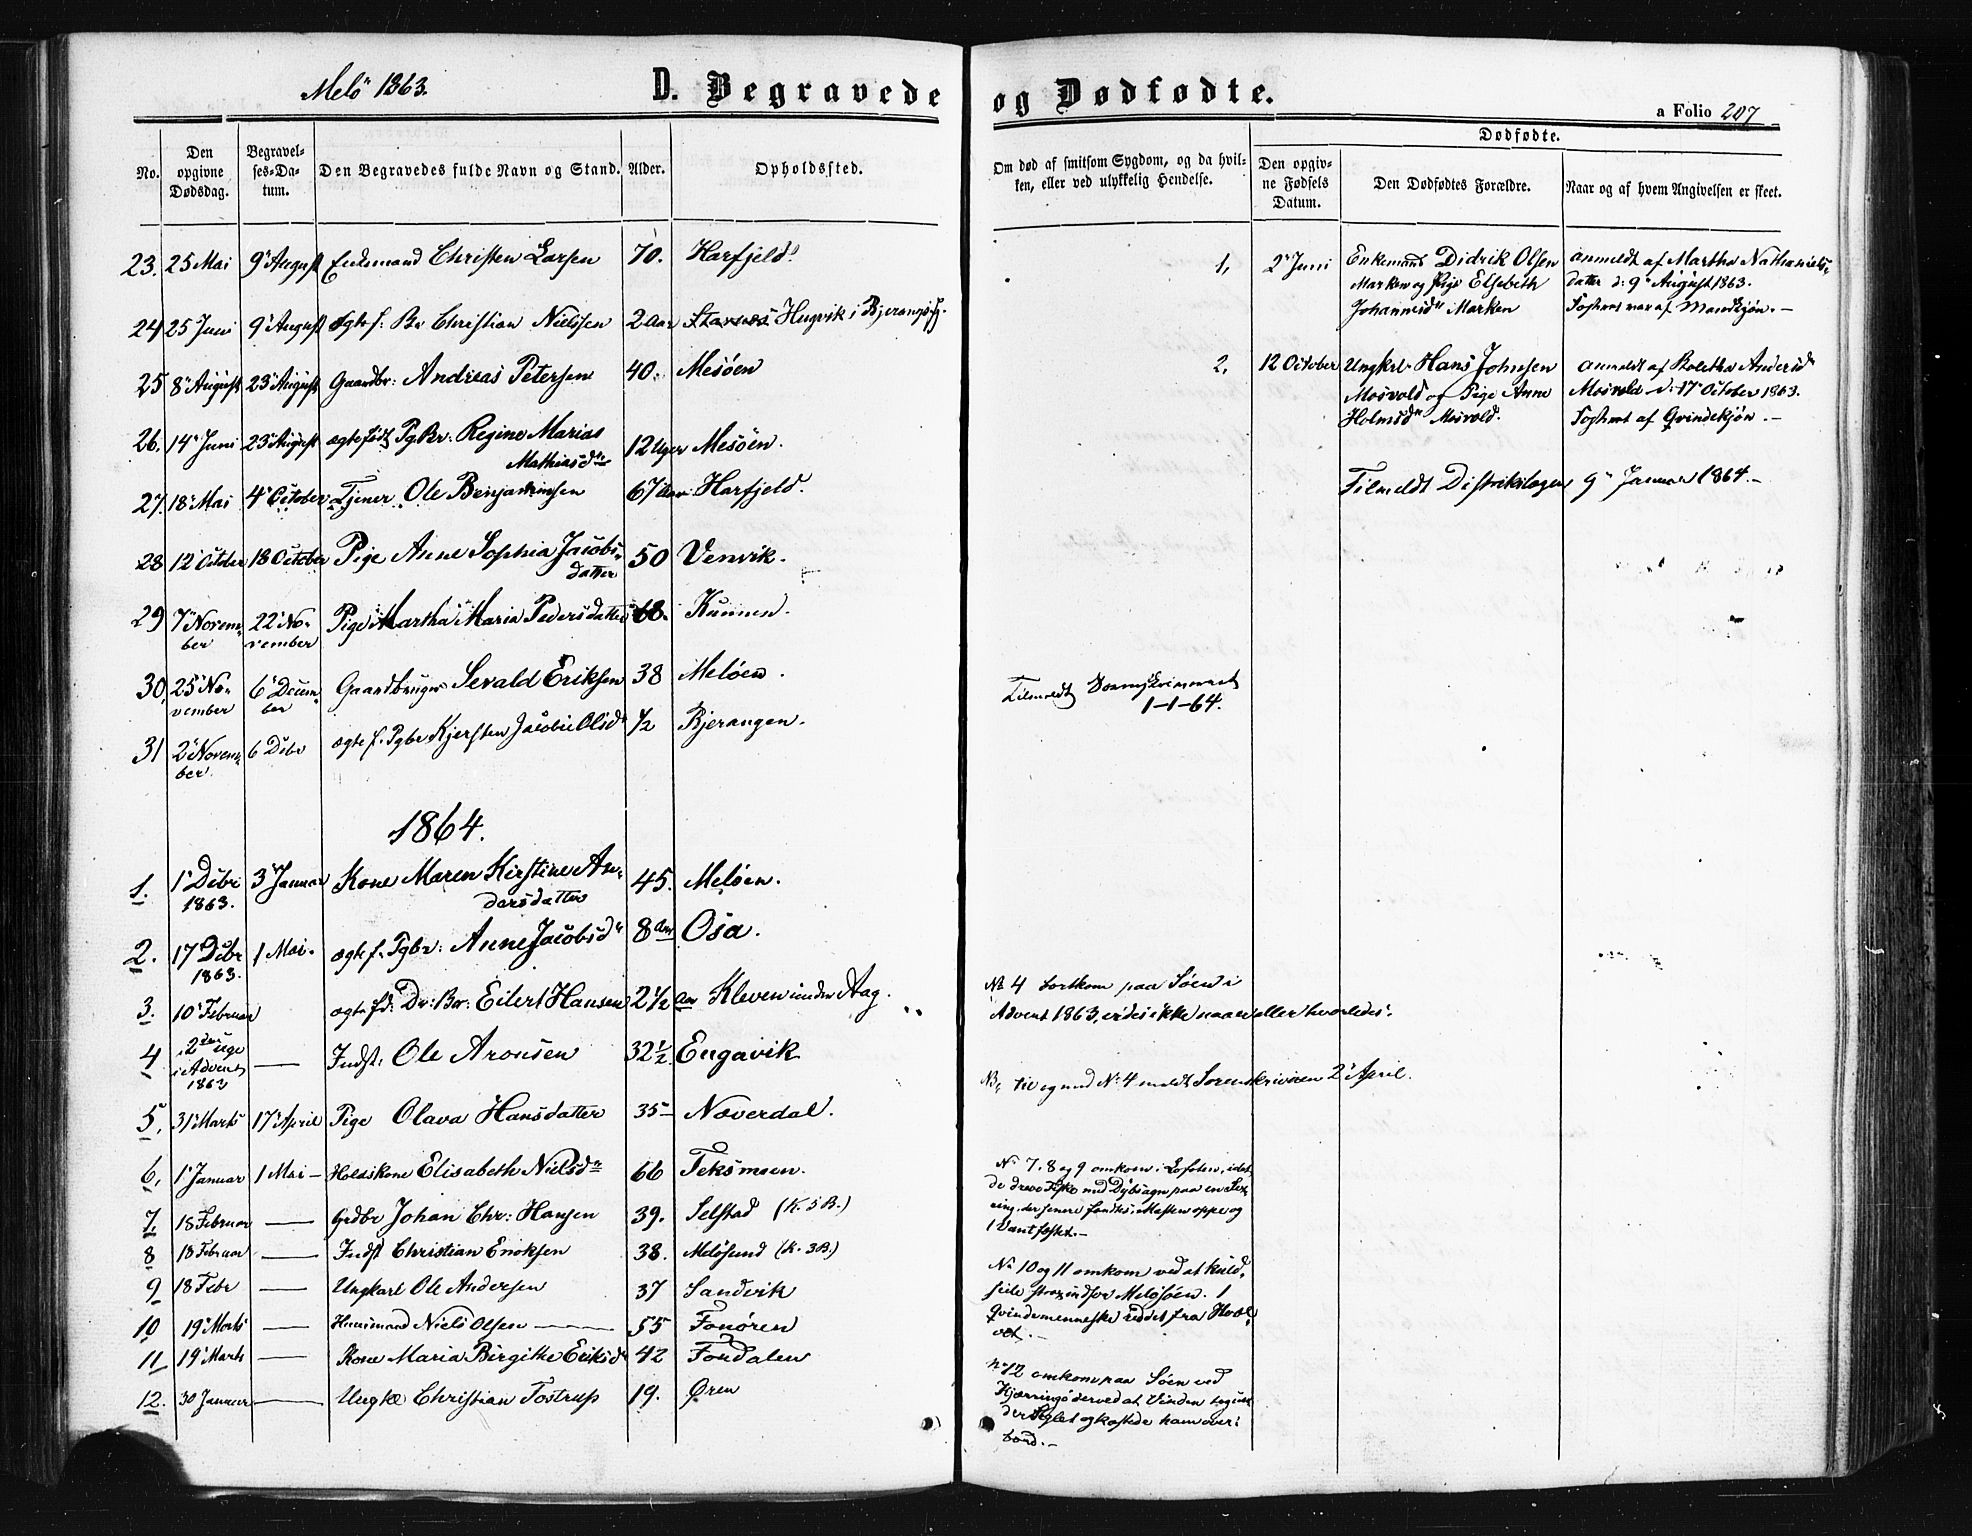 Melö 1863.
D. Begravede
No.
Den opgivne Dødsdag.
Begravelses-Datum.
Den Begravedes fulde Navn og Stand.
Alder.
Opholdssted.
23. 25 Mai 9 August Enkemand Christen Larsen 70. Harfjeld.
24 25 Juni 9 August ægte f. Br Christian Nielssen 2 Aar Hugvik i Bjerangsfj.
25 8 August 23 August Gaardbr: Andreas Petersen 40. Mesöen
26. 14 Juni 23 August ægte født PgBr. Regine Marias
Mathiasdr 12 Uger Mesöen.
27. 18 Mai 4 October Tjener Ole Benjaminsen 67 Aar Harfjeld.
28 12 October 18 October Pige Anne Sophia Jacobs-
datter 50 Venvik.
29 7 Novem-
ber 22 No-
vember Pige Martha Maria Pedersdatter 68. Kunnen.
30, 25 No-
vember 6 Decem-
ber Gaardbruger Sevald Eriksen 38 Melöen.
31 2 Novem-
ber. 6 Debr ægte f. Pgbr Kjersten Jacobie Olsdr ½ Bjerangen.
1864.
1. 1 Debr
1863. 3 Januar Kone Maren Kirstine An-
dersdatter 45. Melöen.
2. 17 Debr
1863. 1 Mai. ægte f. Pgbr: Anne Jacobsdr 8 Aar Osa.
3. 10 Februar ægte fd: Dr: Br: Eilert Hansen 2½ Aar Kleven under Aag.
4 i 2den Uge
i Advent
1863 — Indst. Ole Aronsen 32½ Engavik
5. 31 Marts 17 April Pige Olava Hansdatter 35 Næverdal.
6. 1 Januar 1 Mai Holdskone Elisabeth Nielsdr 66 Teksmoen.
7. 18 Februar — Grdbr Johan Chr: Hansen 39. Selstad (K. 5 B.)
8 18 Februar — Indst Christian Enoksen 38. Melösund (K. 3 B.)
9 18 Febr — Ungkarl Ole Andersen 37 Sandvik
10 19 Marts — Huusmand Niels Olsen 55 Fonören
11 19 Marts — Kone Maria Birgitte Eriksdr 42 Fondalen
12. 30 Januar — Ungkl Christian Tostrup 19. Øren
og Dødfødte.
a Folio 207
Om død af smitsom Sygdom, og da hvilken, eller ved ulykkelig Hendelse.
Dødfødte.
Den opgivne Fødsels Datum.
Den Dødfødtes Forældre.
Naar og af hvem Angivelsen er skeet.
1, 2 Juni Enkemand Didrik Olsen
Marken og Pige Elsebeth
Johannesdr Marken
anmeldt af Martha Nathaniels-
datter d: 9 August 1863.
Fosteret var af Mandkjön.
2, 12 October Ungkrl. Hans Johnsen
Mosvold og Pige Anne
Holmsdr Mosvold.
anmeldt af Andersdr
Mosvold d: 17 October 1863.
Fosteret af Qvindekjön.
Tilmeldt Distriktslægen 9 Januar 1864.
Tilmeldt
1-1-64.
No 4 bortkom paa Söen i
Advent 1863, vides ikke naar eller hvorledes.
No 4 meldt Sorenskriveren 2 April.
No 7, 8 og 9 omkom i Lofoten, idet
de dreve Fiske med Dybsagn paa en Sex-
ring, der senere fandtes, Masten oppe og
1 Vant fastet.
No 10 og 11 omkom ved at kuld-
seile strax indfor Melöen. 1
Qvindemenneske reddet fra Hvæl-
vet.
No 12 omkom paa Söen ved
Kjærringö derved at Vinden tog un-
der Seglet og kastede ham over-
bord.